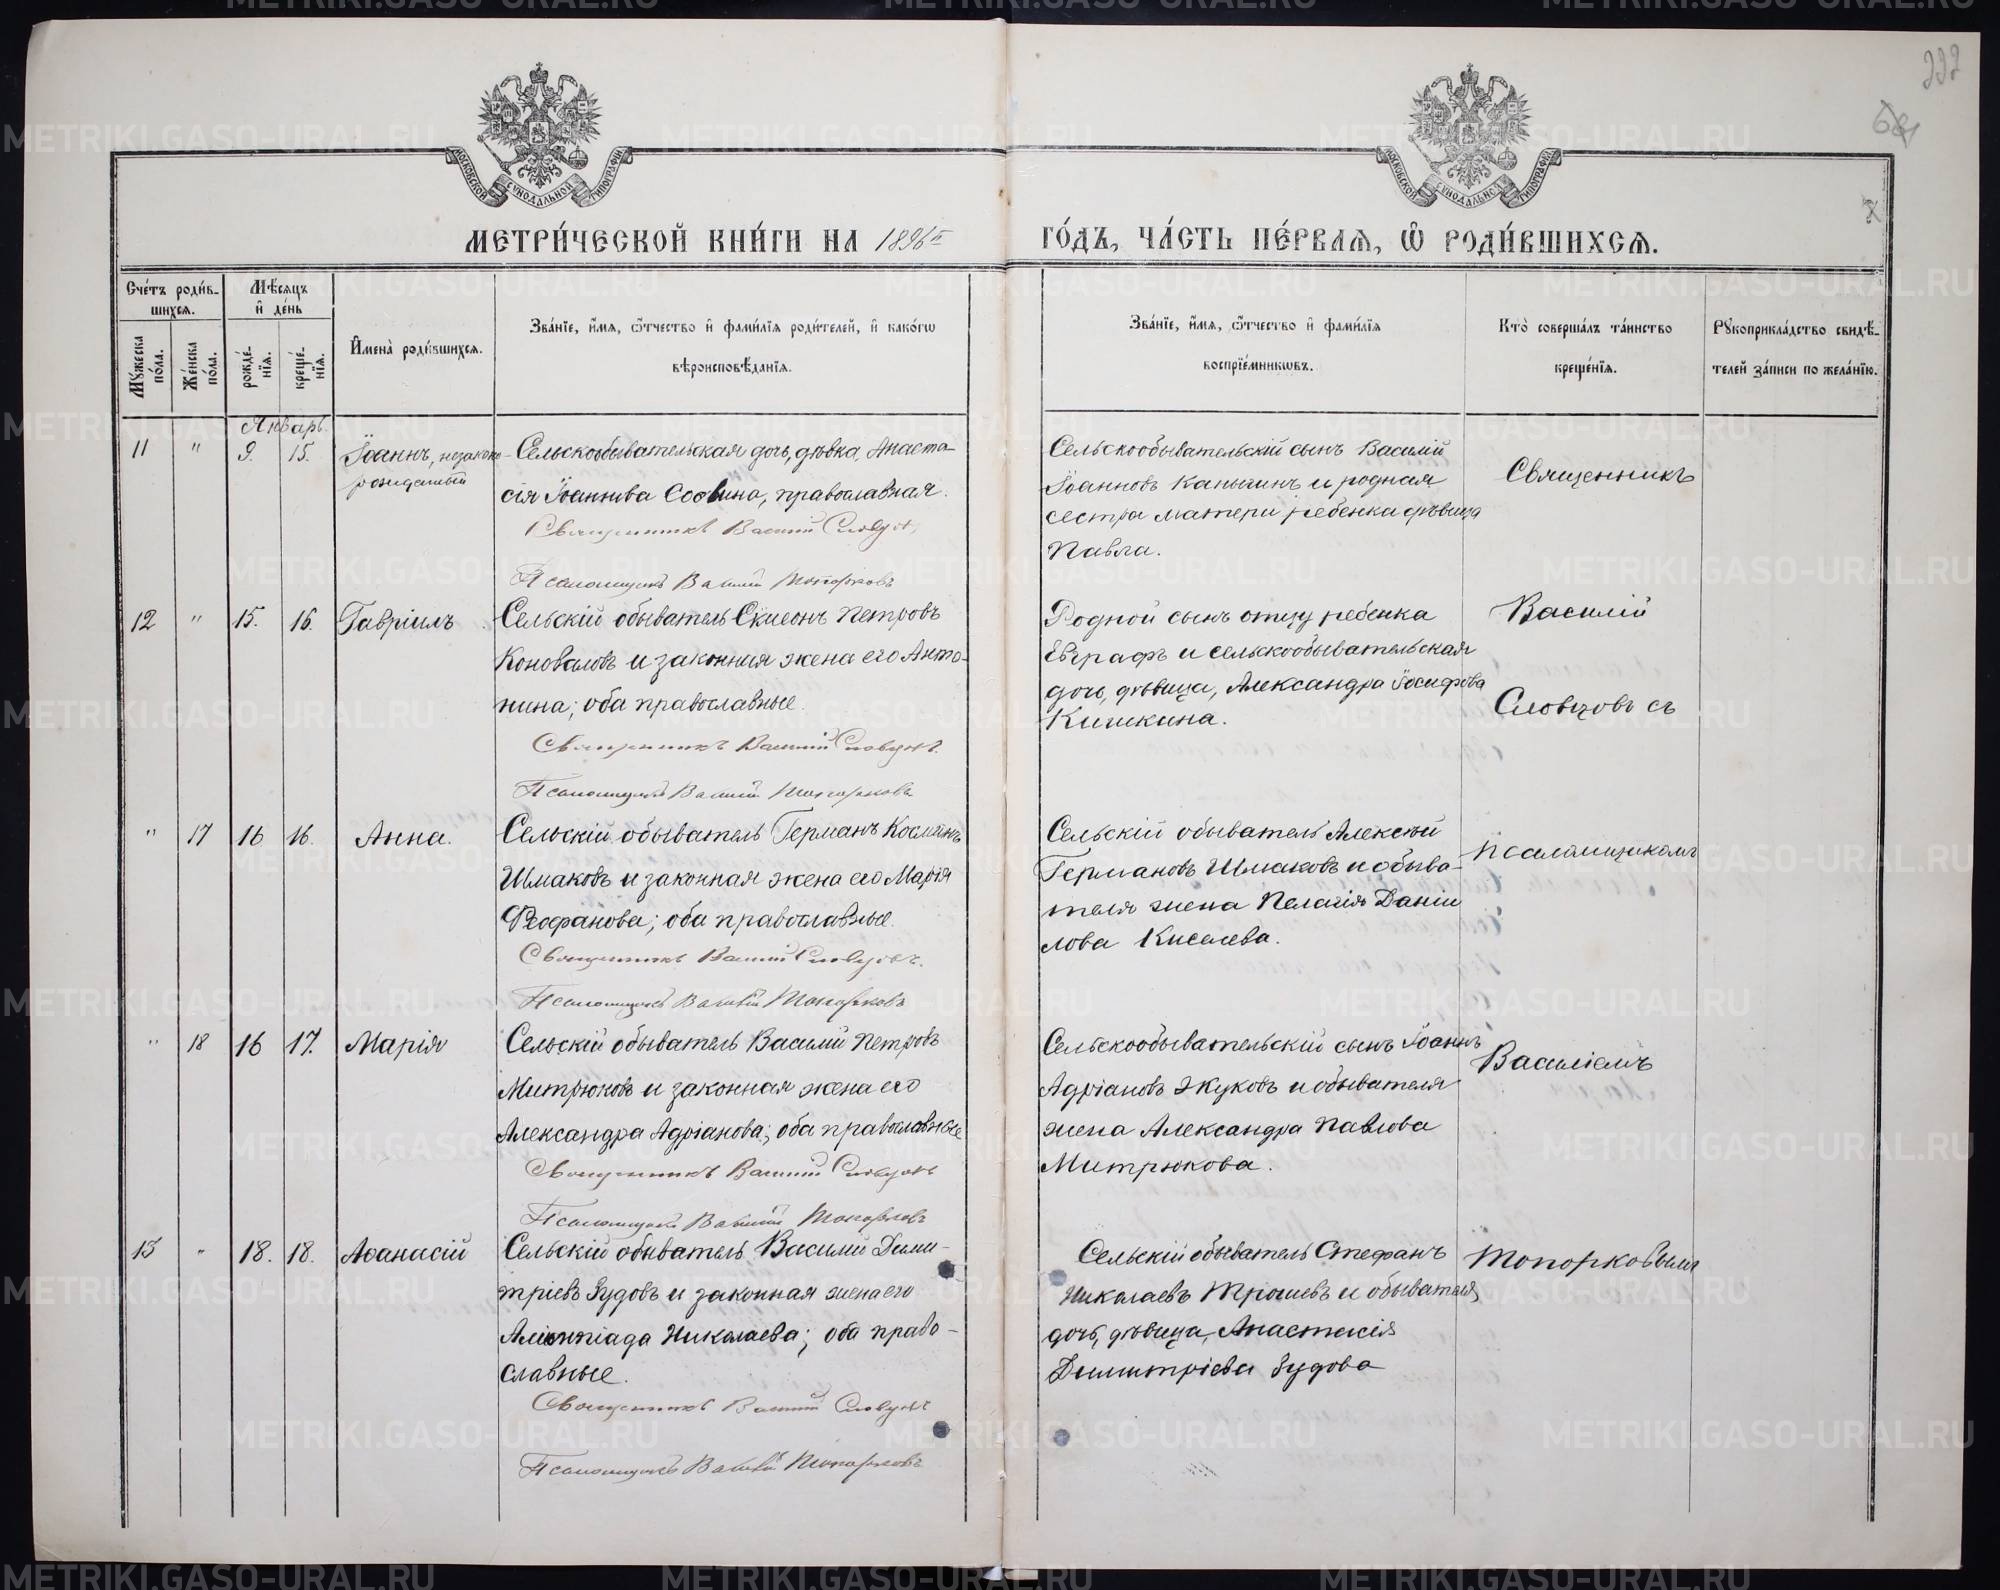 222
МОСКОВСКОЙ СѴНОДАЛЬНОЙ ТИПОГРАФІИ
МОСКОВСКОЙ СѴНОДАЛЬНОЙ ТИПОГРАФІИ
МЕТРИ́ЧЕСКОЙ КНИ́ГИ НА 1896й ГО́ДЪ, ЧА́СТЬ ПЕ́РВАѦ, Ѡ РОДИ́ВШИХСѦ.
Сче́тъ роди́в-
шихсѧ.
Мѣ́сѧцъ
и҆ де́нь
Мꙋ́жеска по́ла.
Же́нска по́ла.
рожде́-
нїѧ.
креще́-
нїѧ.
И҆мена̀ роди́вшихсѧ.
Зва́нїе, и҆́мѧ, ѻ҆́тчество и҆ фами́лїѧ роди́телей, и҆ како́гѡ
вѣроисповѣ́данїѧ.
Зва́нїе, и҆́мѧ, ѻ҆́тчество и҆ фами́лїѧ
воспрїе́мникѡвъ.
Кто̀ соверша́лъ та́инство
креще́нїѧ.
Рꙋкоприкла́дство свидѣ́-
телей за́писи по жела́нїю.
Январь.
11 " 9. 15. Іоаннъ, незаконно-
рожденный
Сельскообывательская дочь, дѣвка, Анаста-
сія Іоаннова Савина, православная.
Священникъ Василій Словцовъ
Псаломщикъ Василій Топорковъ
Сельскообывательскій сынъ Василій
Іоанновъ Капыгинъ и родная
сестра матери ребенка дѣвица
Павла.
Священникъ
12 " 15. 16. Гавріилъ
Сельскій обыватель Симеонъ Петровъ
Коноваловъ и законная жена его Анто-
нина; оба православные.
Священникъ Василій Словцовъ.
Псаломщикъ Василій Топорковъ
Родной сынъ отцу ребенка
Евграфъ и сельскообывательская
дочь, дѣвица, Александра Іосифова
Кишкина.
Василій
Словцовъ съ
" 17 16 16. Анна.
Сельскій обыватель Германъ Косминъ
Шмаковъ и законная жена его Марія
Феофанова; оба православные.
Священникъ Василій Словцовъ.
Псаломщикъ Василій Топорковъ
Сельскій обыватель Алексѣй
Германовъ Шмаковъ и обыва-
теля жена Пелагія Даніи
лова Киселева.
псаломщикомъ
" 18 16 17. Марія
Сельскій обыватель Василій Петровъ
Митрюковъ и законная жена его
Александра Адріанова; оба православные
Священникъ Василій Словцовъ
Псаломщикъ Василій Топорковъ
Сельскообывательскій сынъ Іоаннъ
Адріановъ Жуковъ и обывателя
жена Александра Павлова
Митрюкова.
Василіемъ
13 " 18. 18. Аѳанасій
Сельскій обыватель Василій Дими-
тріевъ Зудовъ и законная жена его
Алимпіада Николаева; оба право-
славные.
Священникъ Василій Словцовъ
Псаломщикъ Василій Топорковъ
Сельскій обыватель Стефанъ
Николаевъ Трошевъ и обывателя
дочь, дѣвица, Анастасія
Димитріева Зудова
Топорковымъ
METRIKI.GASO-URAL.RU